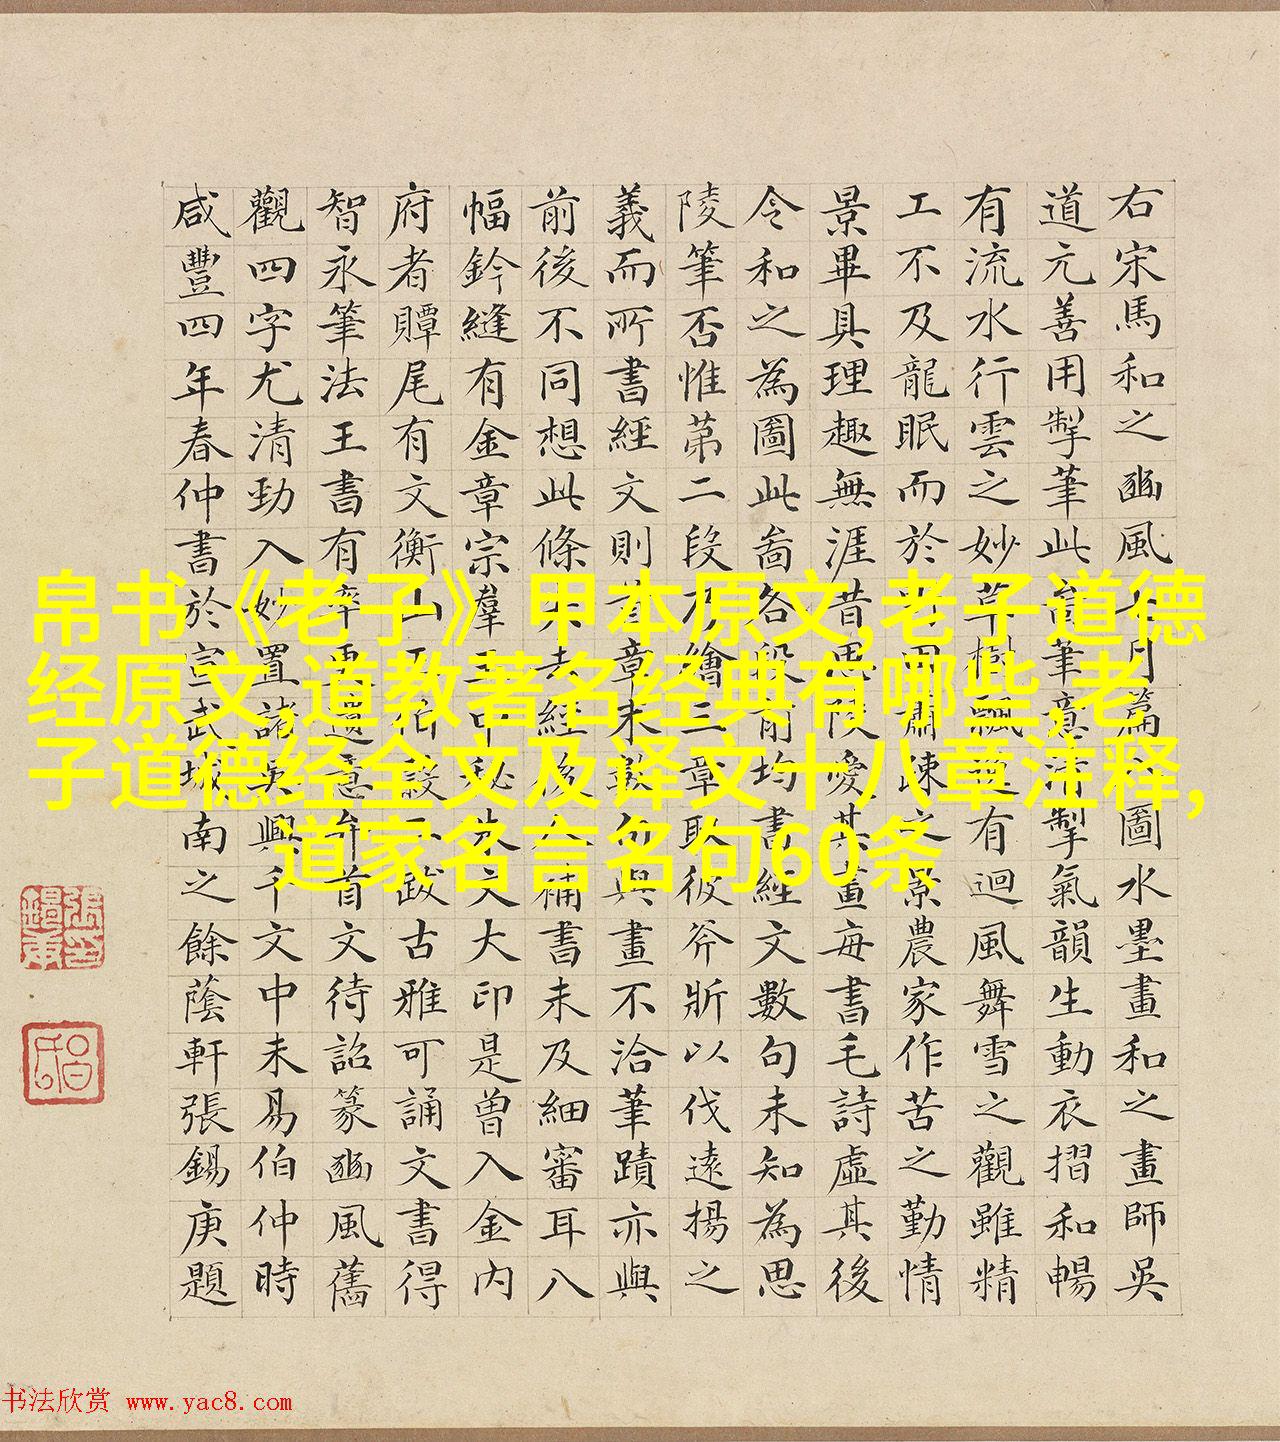 右宋馬和之豳風七月篇圖水墨畫和之畫師吳
道元善用掣筆此筆意清掣氣韻生動衣摺和暢
有流水行雲之妙草樹飄有迴風舞雪之觀雖精
工不及龍眠而於田肅疎之景農家作苦之勤情
景畢具理趣無涯昔思陵愛其畫每書毛詩虛其後
令和之為圖此啚各段前均書經文數句未知為思
陵筆否惟第二段乃繪三章取彼斧斨以伐遠揚之
義而所書經文則首章末數句與畫不洽筆蹟亦與
前後不同想此條失去經後人補書未及細審耳八
幅鈐縫有金章宗羣玉中秘朱文大印是曾入金內
府者贉尾有文衡山跋古雅可誦文書得
智永筆法王書有率更遺意弁首文待詔篆豳風舊
觀四字尤清勁入妙置諸吳興千文中未易伯仲時
咸豐四年春仲書於宣武城南之餘蔭軒張錫庚題
帛书《老子》甲本原文,老子道德
经原文,道教著名经典有哪些,老
子道德经全文及译文十八章注释,
道家名言名句60条
书法欣赏 www.yac8.com